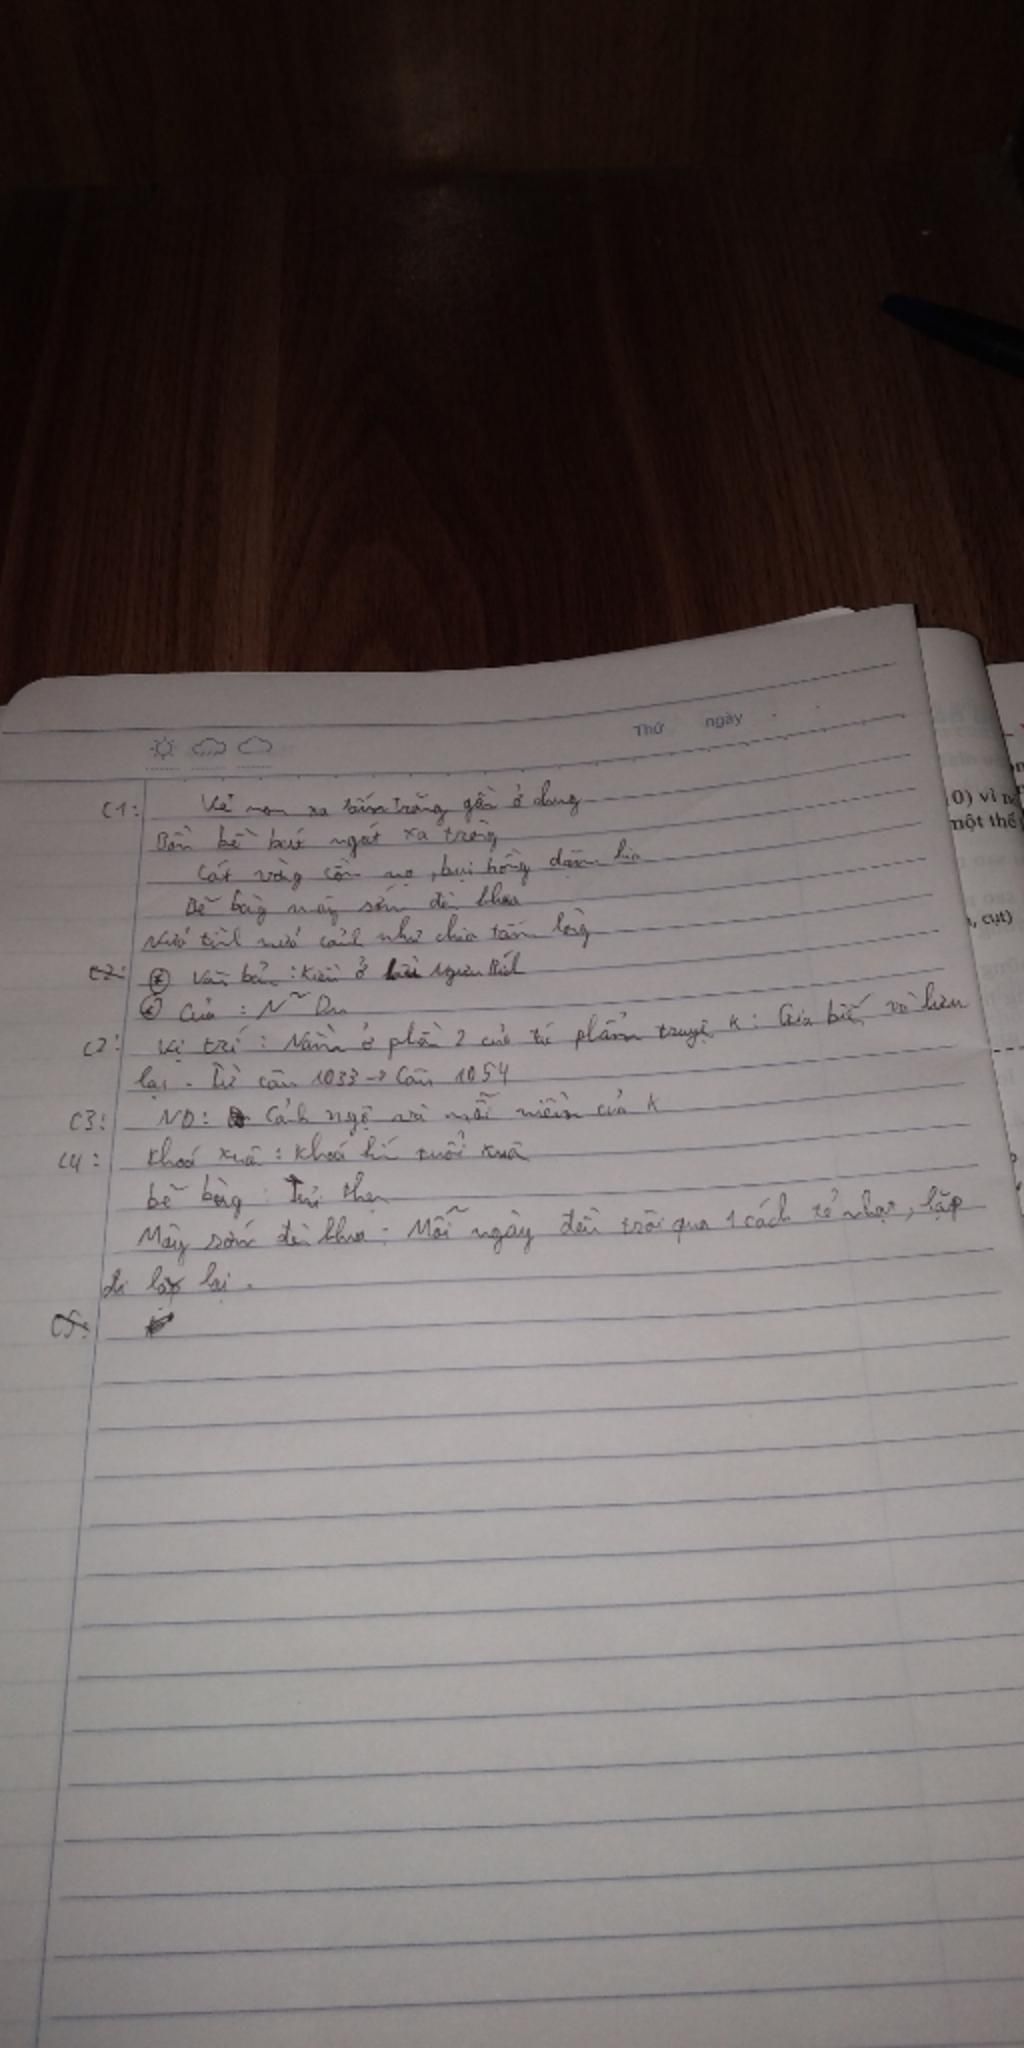 Thứ ngày
C1: Vẻ non xa tấm trăng gần ở chung
Bốn bề bát ngát xa trông
Cát vàng cồn nọ, bụi hồng dặm kia
Bẽ bàng mây sớm đèn khua
Nửa tình nửa cảnh như chia tấm lòng
C2: * Văn bản: Kiều ở lầu Ngưng Bích
* Của: N~ Du
C2: Vị trí: Nằm ở phần 2 của tác phẩm truyện K: Gia biến và lưu
lạc. Từ câu 1033 → Câu 1054
C3: ND: Cảnh ngộ và nỗi niềm của K
C4: Khoá xuân: Khoá kín tuổi xuân
bẽ bàng: Tủi thẹn
Mây sớm đèn khua: Mỗi ngày đều trôi qua 1 cách tẻ nhạt, lặp
đi lặp lại.
C5:
0) vì
một thể
, cụt)